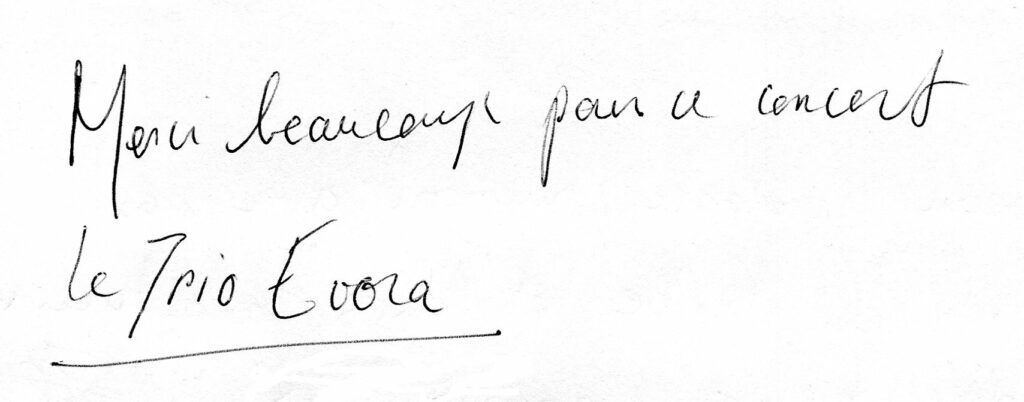 Merci beaucoup pour ce concert
Le Trio Evora